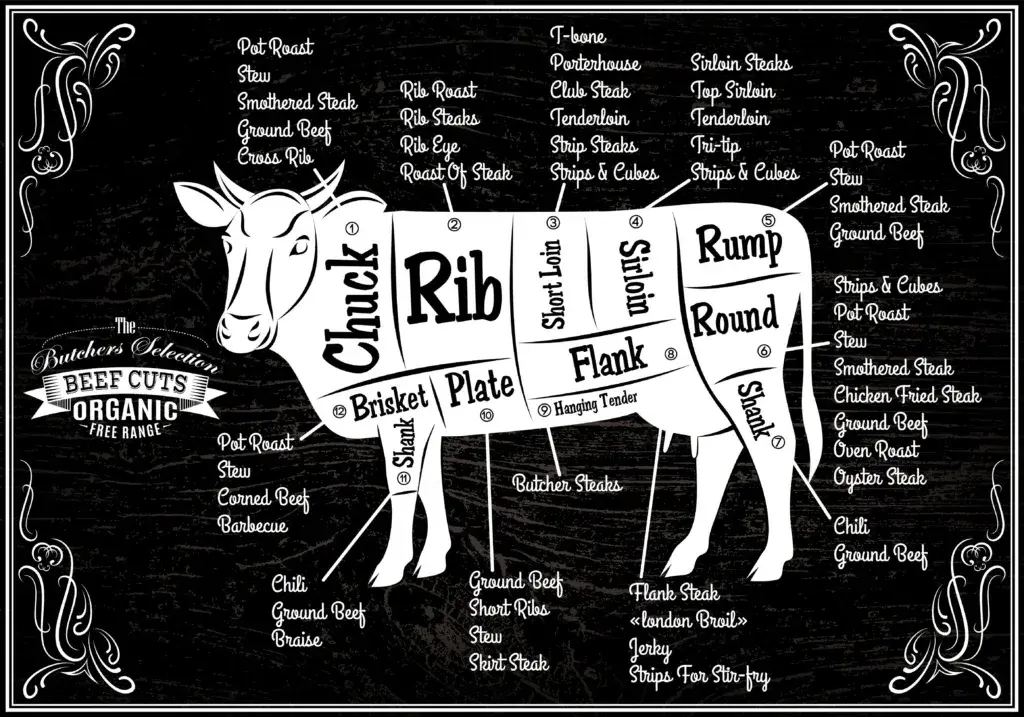 T-bone
Porterhouse
Club Steak
Tenderloin
Strip Steaks
Strips & Cubes
Pot Roast
Stew
Smothered Steak
Ground Beef
Cross Rib
Rib Roast
Rib Steaks
Rib Eye
Roast Of Steak
Sirloin Steaks
Top Sirloin
Tenderloin
Tri-tip
Strips & Cubes
Pot Roast
Stew
Smothered Steak
Ground Beef
① Chuck
② Rib
③ Short Loin
④ Sirloin
⑤ Rump
Round ⑥
Shank ⑦
Flank ⑧
⑨ Hanging Tender
Plate ⑩
Shank ⑪
⑫ Brisket
The
Butchers Selection
BEEF CUTS
ORGANIC
FREE RANGE
Strips & Cubes
Pot Roast
Stew
Smothered Steak
Chicken Fried Steak
Ground Beef
Oven Roast
Oyster Steak
Pot Roast
Stew
Corned Beef
Barbecue
Butcher Steaks
Chili
Ground Beef
Chili
Ground Beef
Braise
Ground Beef
Short Ribs
Stew
Skirt Steak
Flank Steak
«london Broil»
Jerky
Strips For Stir-fry